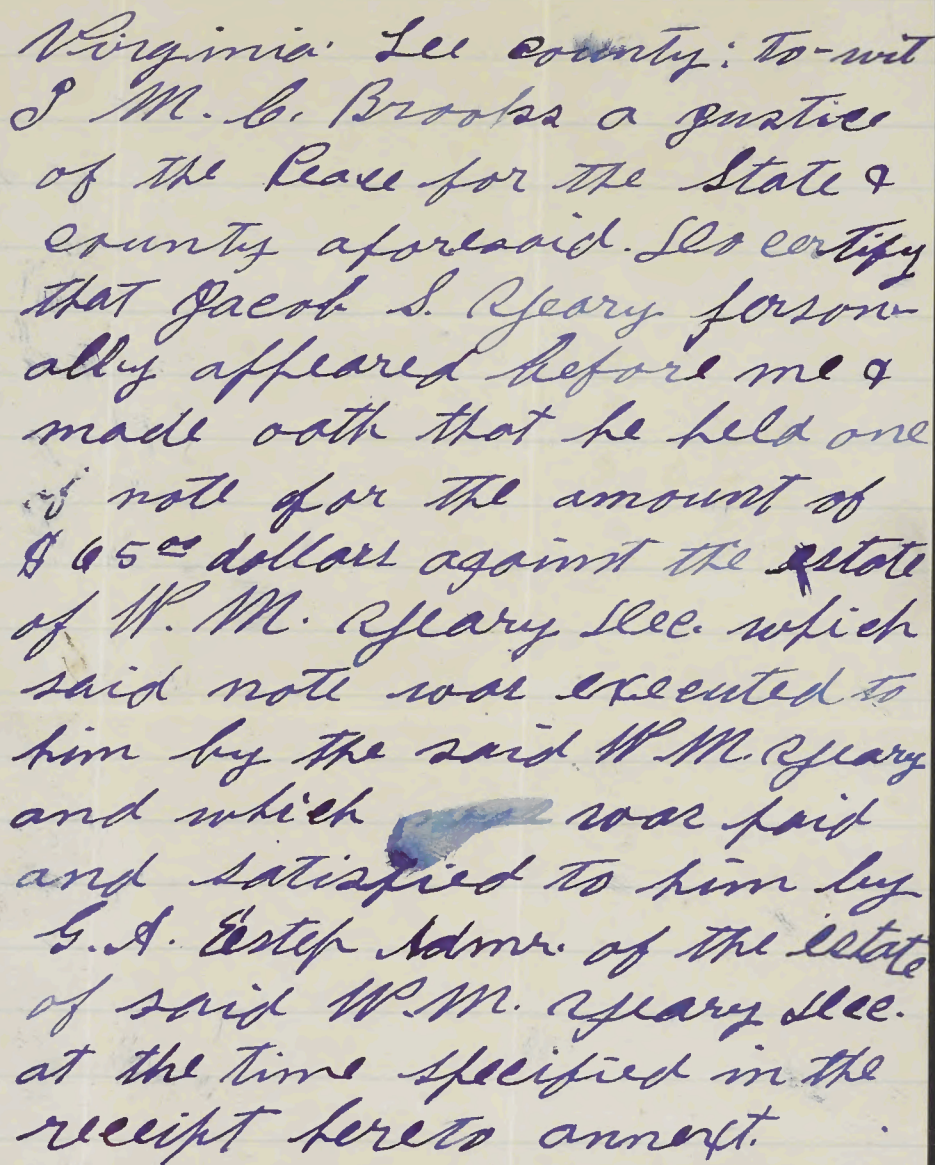 Virginia Lee county: to-wit
I M. C. Brooks a Justice
of the Peace for the State &
county aforesaid. Do certify
that Jacob S. Yeary person-
ally appeared before me &
made oath that he held one
note for the amount of
$65 00 dollars against the estate
of W. M. Yeary Dec. which
said note was executed to
him by the said W. M. Yeary
and which was paid
and satisfied to him by
G. A. Estep Admr. of the estate
of said W. M. Yeary Dec.
at the time specified in the
receipt hereto annext.